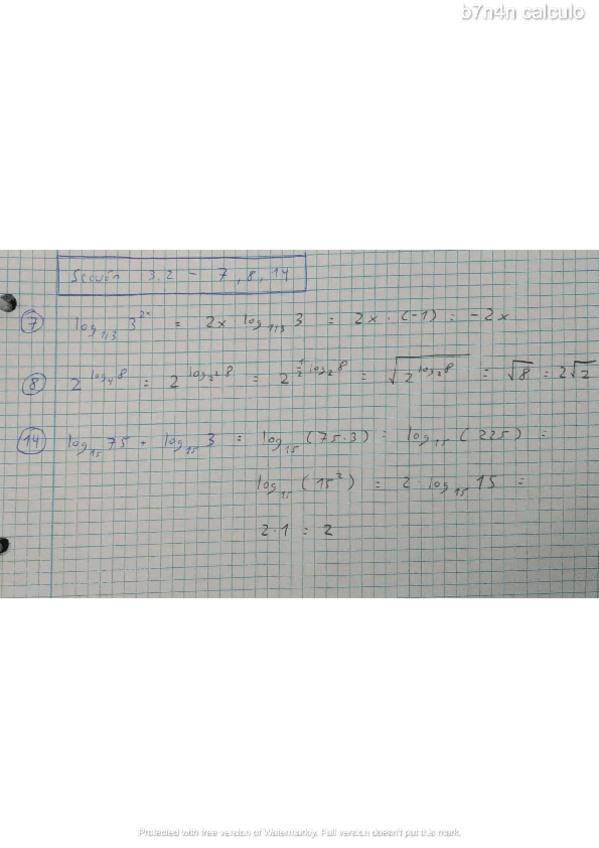 b7n4n calculo
Sección 3.2 - 7, 8, 14
7 log_{1/3} 3^{2x} = 2x · log_{1/3} 3 = 2x · (-1) = -2x
8 2^{log_4 8} = 2^{log_{2^2} 8} = 2^{\frac{1}{2} log_2 8} = \sqrt{2^{log_2 8}} = \sqrt{8} = 2\sqrt{2}
14 log_{15} 75 + log_{15} 3 = log_{15} (75·3) = log_{15} (225) =
log_{15} (15^2) = 2 · log_{15} 15 =
2·1 = 2
Protected with free version of Watermarkly. Full version doesn't put this mark.